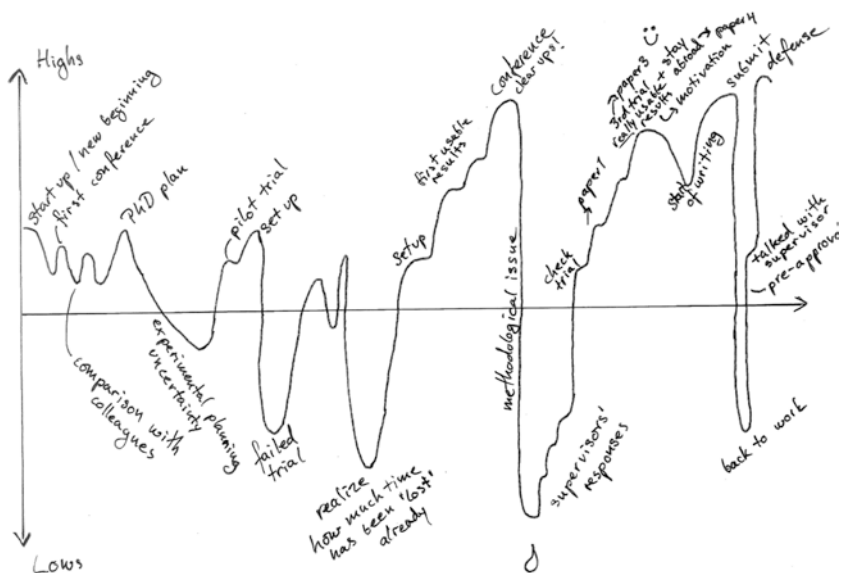 Highs
startup / new beginning
first conference
comparison with
colleagues
PhD plan
experimental planning
uncertainty
pilot trial
set up
failed
trial
realize
how much time
has been 'lost'
already
setup
first usable
results
Conference
clear ups!
methodological issue
supervisors'
responses
check
trial
→ paper 1
→ paper 3
3rd trial + stay
really usable abroad → paper 4
results
↳ motivation
start
of writing
submit
back to work
talked with
supervisor
pre-approval
defense
Lows